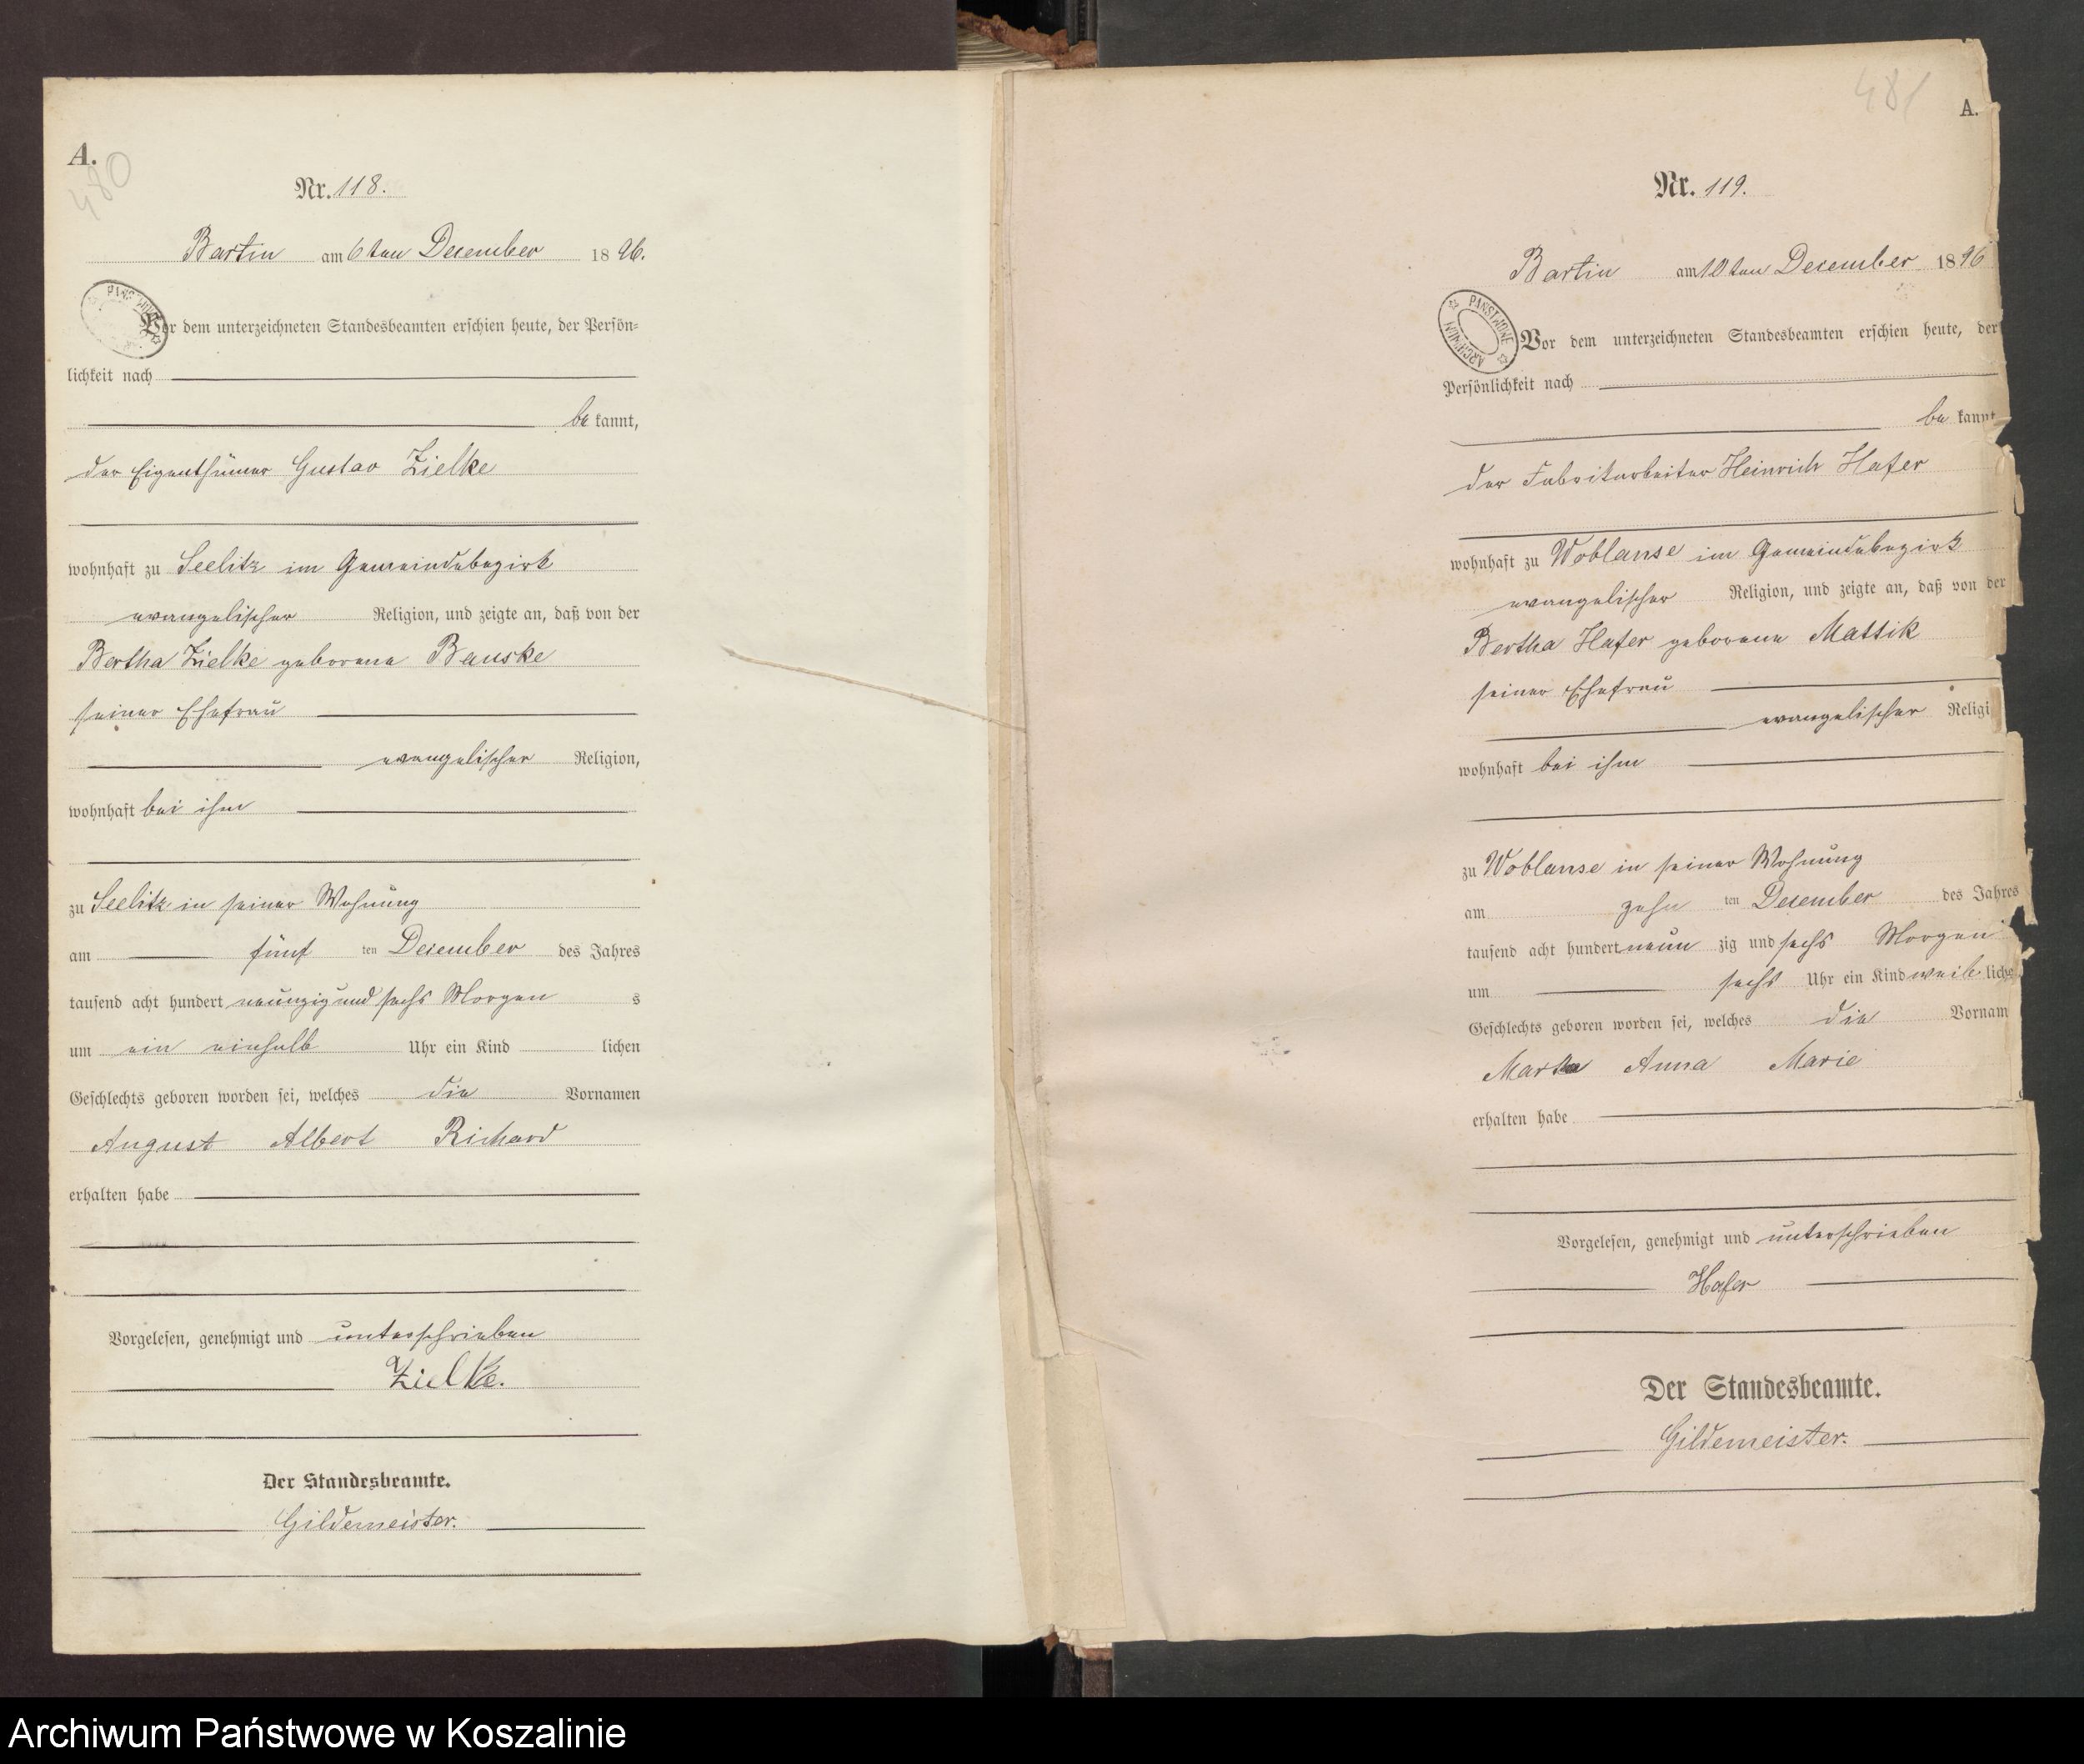 A.
480
Nr. 118.
Bartin am 6ten December 1896.
Vor dem unterzeichneten Standesbeamten erschien heute, der Persön=
lichkeit nach
bekannt,
der Eigenthümer Gustav Zielke
wohnhaft zu Seelitz im Gemeindebezirk
evangelischer Religion, und zeigte an, daß von der
Bertha Zielke geborene Bauske
seiner Ehefrau
evangelischer Religion,
wohnhaft bei ihm
zu Seelitz in seiner Wohnung
am fünf ten December des Jahres
tausend acht hundert neunzig und sechs Morgens
um ein einhalb Uhr ein Kind lichen
Geschlechts geboren worden sei, welches die Vornamen
August Albert Richard
erhalten habe
Vorgelesen, genehmigt und unterschrieben
Zielke.
Der Standesbeamte.
Gildemeister.
481
A.
Nr. 119.
Bartin am 10ten December 1896
PAŃSTWOWE ARCHIWUM
Vor dem unterzeichneten Standesbeamten erschien heute, der
Persönlichkeit nach
bekannt
der Fabrikarbeiter Heinrich Hafer
wohnhaft zu Woblanse im Gemeindebezirk
evangelischer Religion, und zeigte an, daß von der
Bertha Hafer geborene Mattik
seiner Ehefrau
evangelischer Religi
wohnhaft bei ihm
zu Woblanse in seiner Wohnung
am zehn ten December des Jahres
tausend acht hundert neun zig und sechs Morgens
um sechs Uhr ein Kind weib liche
Geschlechts geboren worden sei, welches die Vornam
Martha Anna Marie
erhalten habe
Vorgelesen, genehmigt und unterschrieben
Hafer
Der Standesbeamte.
Gildemeister.
Archiwum Państwowe w Koszalinie